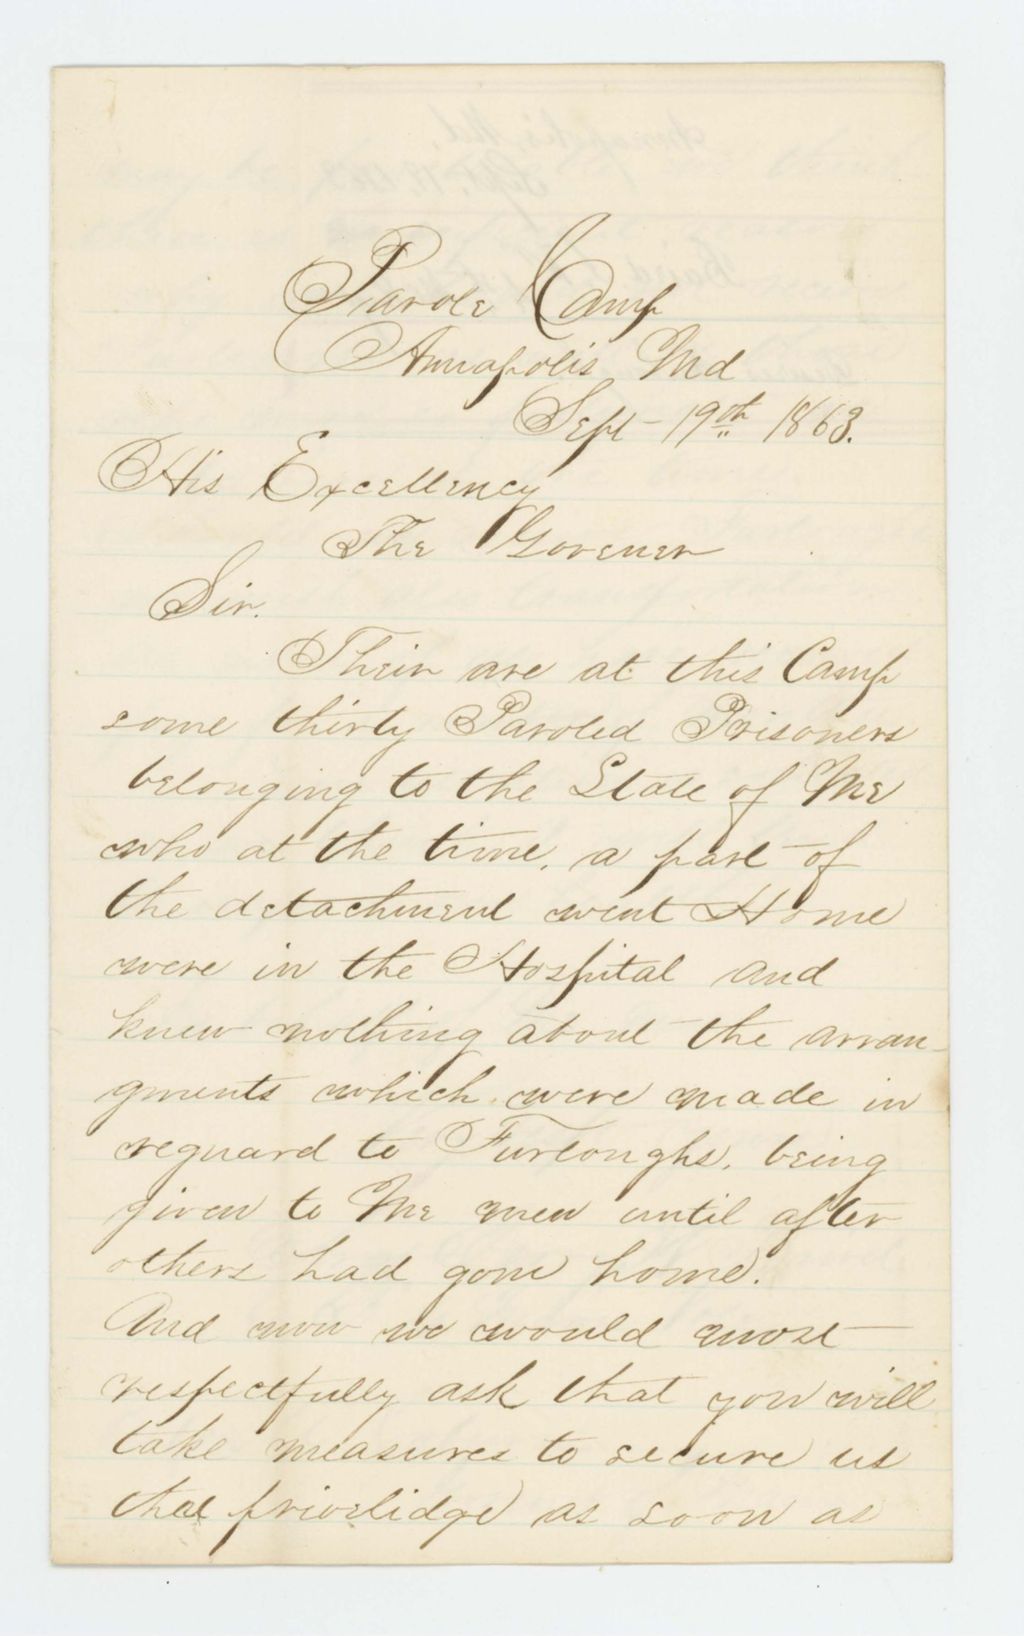 Parole Camp
Annapolis Md
Sept - 19th 1863.
His Excellency
The Govener
Sir.
Their are at this Camp
some thirty Paroled Prisoners
belonging to the State of Me
who at the time, a part of
the detachment went Home
were in the Hospital and
knew nothing about the arran-
gments which were made in
reguard to Furloughs, being
given to Me men until after
others had gone home.
And now we would most
respectfully ask that you will
take measures to secure us
that privelidge as soon as